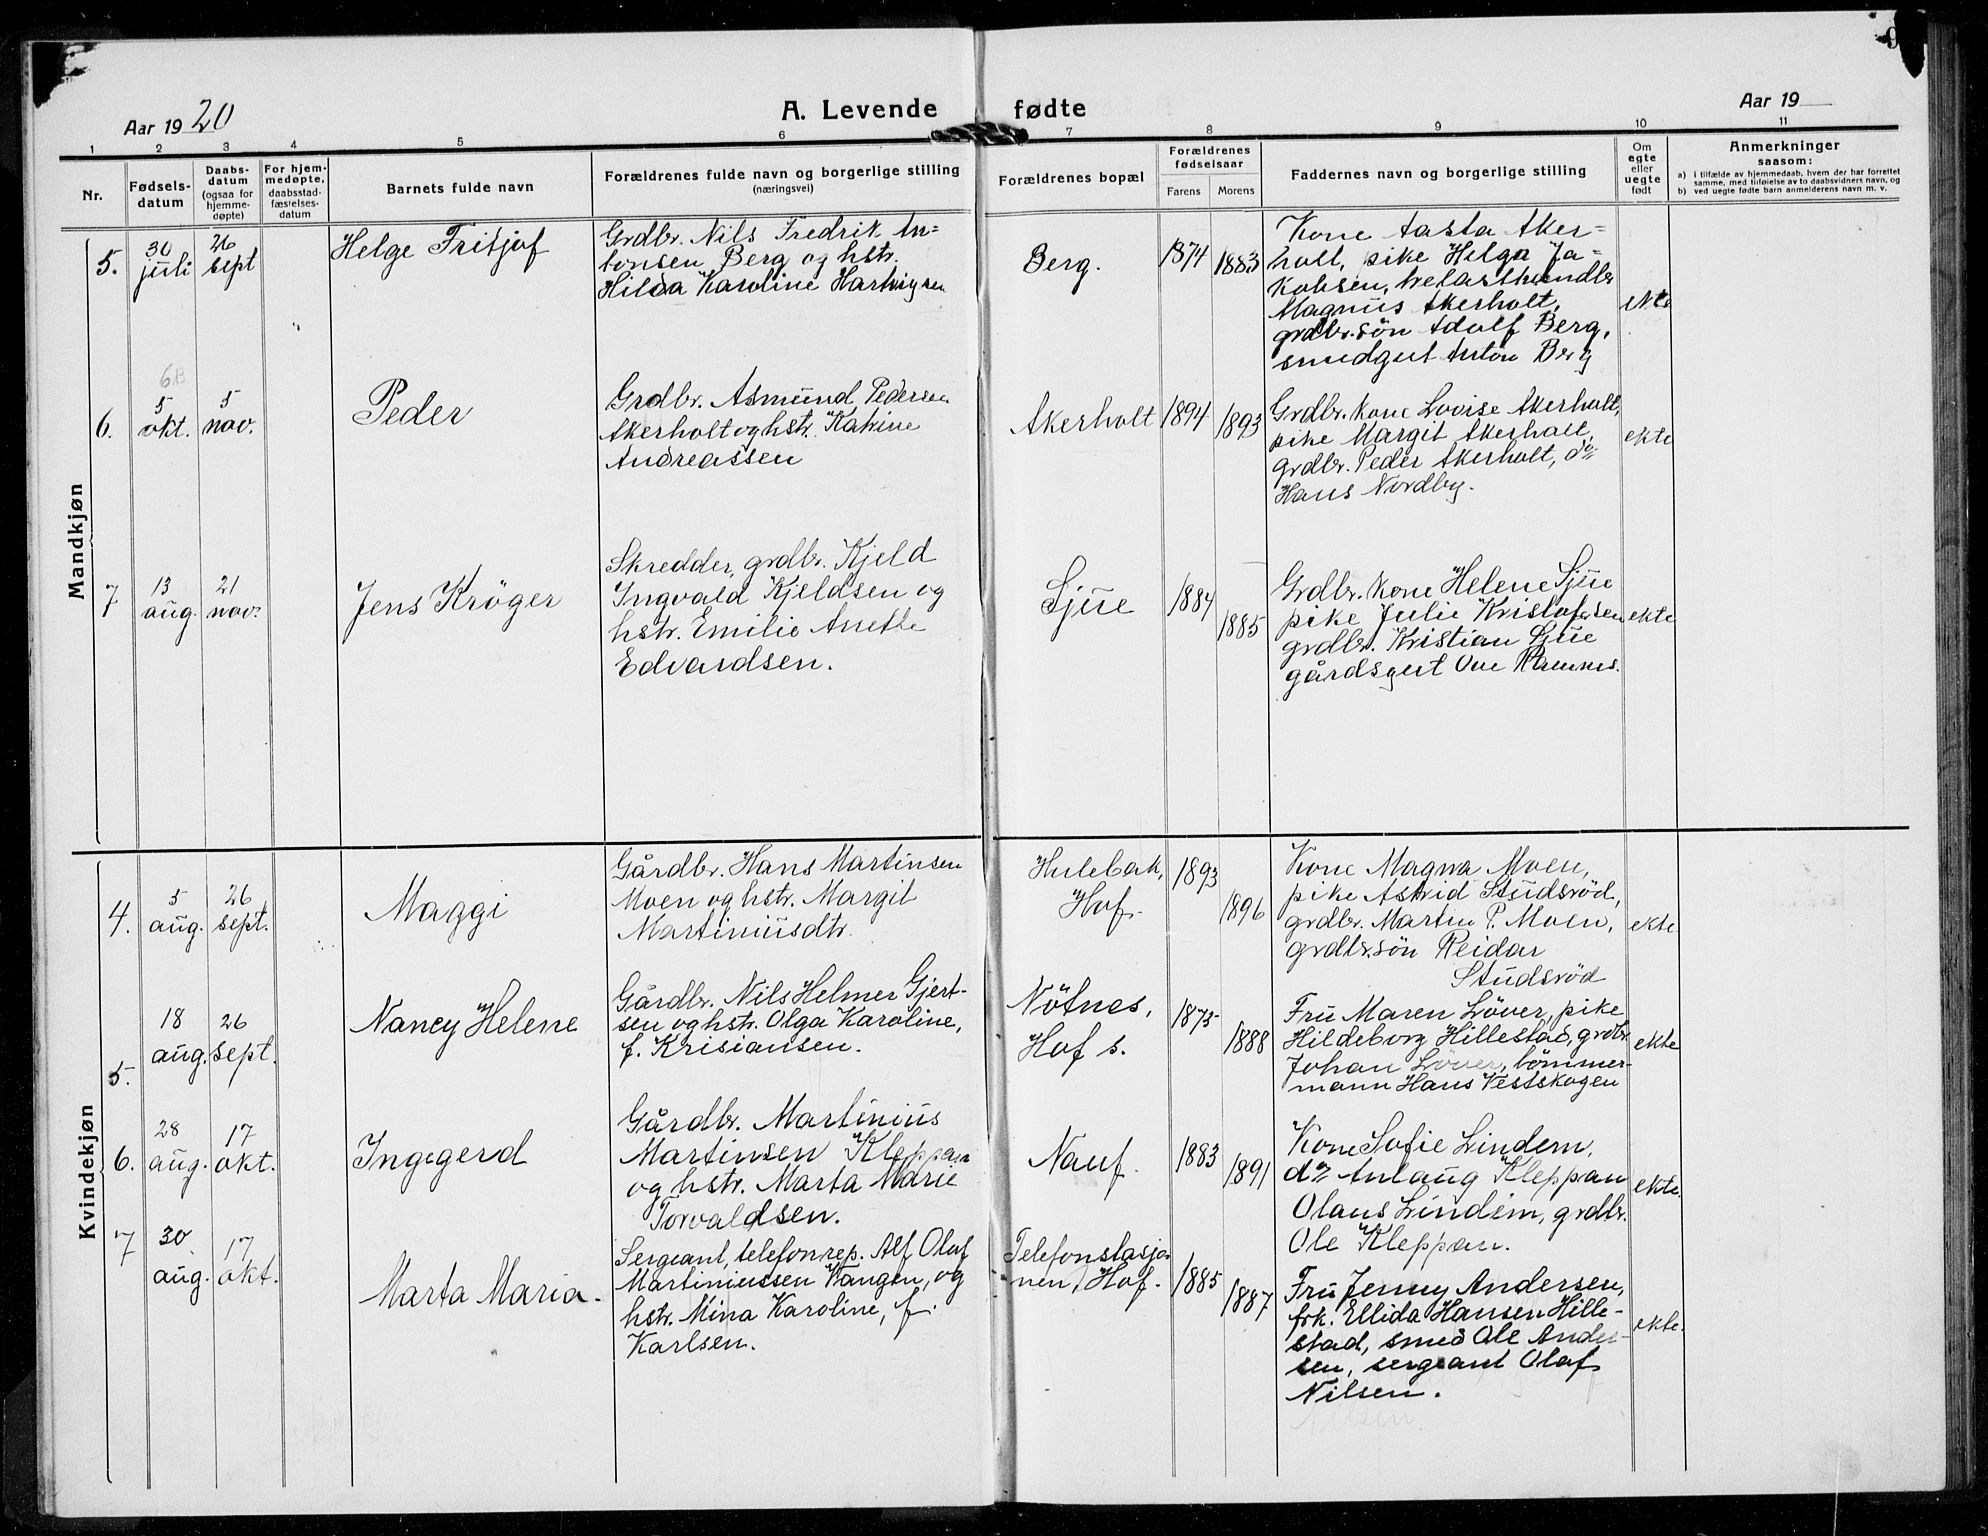 Aar 1920
A. Levende fødte
Aar 19
9
1 2 3 4 5 6 7 8 9 10 11
Nr.
Fødsels-
datum
Daabs-
datum
(ogsaa for
hjemme-
døpte)
For hjem-
medøpte,
daabsstad-
fæstelses-
datum
Barnets fulde navn
Forældrenes fulde navn og borgerlige stilling
(næringsvei)
Forældrenes bopæl
Forældrenes
fødselsaar
Farens Morens
Faddernes navn og borgerlige stilling
Om
egte
eller
uegte
født
Anmerkninger
saasom:
a) i tilfælde av hjemmedaab, hvem der har forrettet
samme, med tilføielse av to daabsvidners navn, og
b) ved uegte fødte barn anmelderens navn m. v.
Mandkjøn
5.
30
juli
26
sept
Helge Fritjof
Grdbr. Nils Fredrik An=
tonsen Berg og hstr.
Hilda Karoline Hartvigsen
Berg.
1874
1883
Kone Aasta Aker=
holt, pike Helga Ja=
kobsen, trelasthandler
Magnus Akerholt,
grdbr.søn Adolf Berg,
smedgut Anton Berg
ekte
6.
5
okt.
5
nov.
Peder
Grdbr. Asmund Pedersen
Akerholt og hstr. Katrine
Andreassen
Akerholt
1894
1893
Grdbr. kone Lovise Akerholt,
pike Margit Akerholt,
grdbr. Peder Akerholt, do
Hans Nordby.
ekte
7
13
aug.
21
nov.
Jens Kröger
Skredder, grdbr. Kjeld
Ingvald Kjeldsen og
hstr. Emilie Anette
Edvardsen.
Sjue
1884
1885
Grdbr. kone Helene Sjue
pike Julie Kristofersen
grdbr. Kristian Sjue
gårdsgut Ove Ramnes.
ekte
Kvindekjøn
4.
5
aug.
26
sept.
Maggi
Gårdbr. Hans Martinsen
Moen og hstr. Margit
Martiniusdtr.
Hulebak,
Hof.
1893
1896
Kone Magna Moen,
pike Astrid Studsröd,
grdbr. Martin P. Moen,
grdbr.søn Reidar
Studsröd
ekte
5.
18
aug.
26
sept.
Nancy Helene
Gårdbr. Nils Helmer Gjert-
sen og hstr. Olga Karoline,
f. Krisiansen.
Nötnes,
Hof s.
1875
1888
Fru Maren Löver, pike
Hildeborg Hillestad, grdbr.
Johan Löver, tömmer-
mann Hans Vestskogen
ekte
6.
28
aug.
17
okt.
Ingegerd
Gårdbr. Martinius
Martinsen Kleppan
og hstr. Marta Marie
Torvaldsen.
Nauf.
1883
1891
Kone Sofie Lindem,
do Anlaug Kleppan
Olaus Lindem, grdbr.
Ole Kleppan.
ekte.
7
30
aug.
17
okt.
Marta Maria.
Sergeant, telefonrep. Alf Olaf
Martiniussen Vangen, og
hstr. Mina Karoline, f.
Karlsen.
Telefonstasjo
nen, Hof.
1885
1887
Fru Jenny Andersen,
frk. Ellida Hansen Hille-
stad, smed Ole Ander-
sen, sergeant Olaf
Nilsen.
ekte.